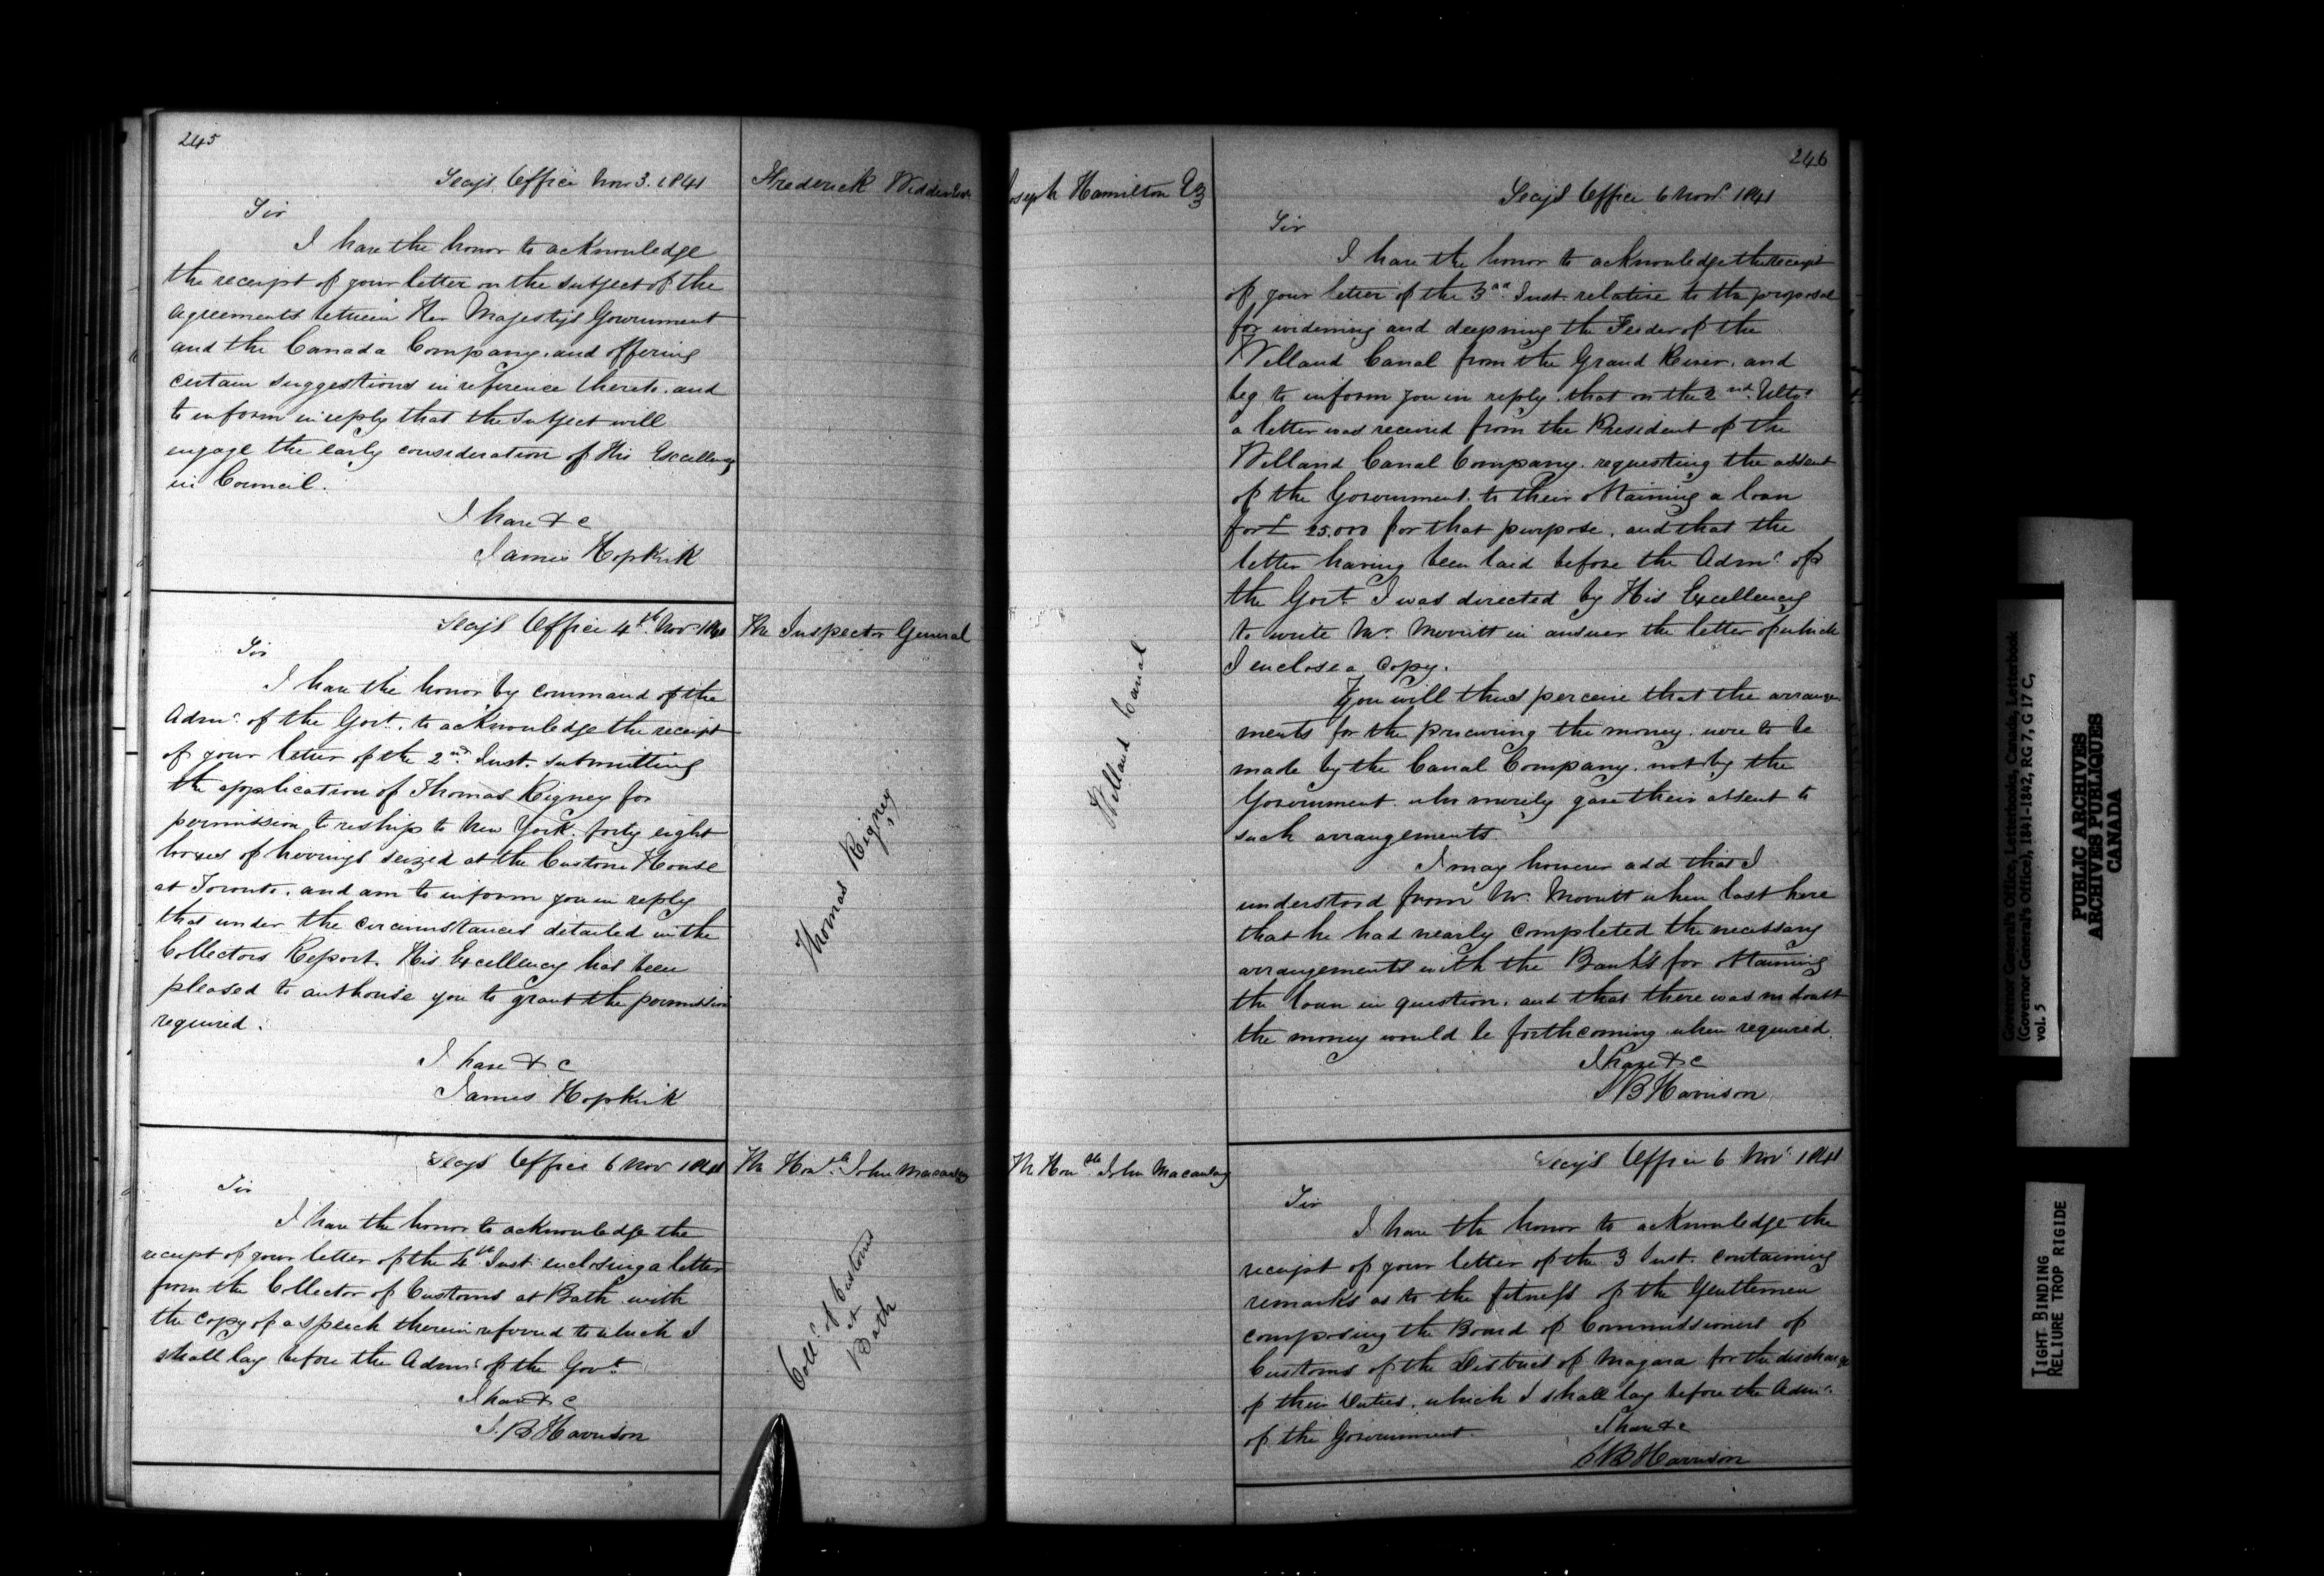 245
Secy's Office Nov 3. 1841
Frederick Widder Esqr
Sir
I have the honor to acknowledge
the receipt of your letter on the subject of the
Agreements between Her Majesty's Government
and the Canada Company, and offering
certain suggestions in reference thereto, and
to inform in reply that the subject will
engage the early consideration of His Excellency
in Council.
I have &c
James Hopkirk
Secy's Office 4th Nov 1841
The Inspector General
Sir
I have the honor by command of the
Admr. of the Govt. to acknowledge the receipt
of your letter of the 2nd Inst. submitting
the application of Thomas Rigney for
permission to reship to New York, forty eight
boxes of herrings seized at the Custom House
at Toronto, and am to inform you in reply
that under the circumstances detailed in the
Collectors Report, His Excellency has been
pleased to authorise you to grant the permission
required.
Thomas Rigney
I have &c
James Hopkirk
Secy's Office 6 Nov 1841
The Honble John Macaulay
Sir
I have the honor to acknowledge the
receipt of your letter of the 4th Inst enclosing a letter
from the Collector of Customs at Bath with
the copy of a speech therein referred to which I
shall lay before the Admr of the Govt
Collr of Customs
at
Bath
I have &c
S. B Harrison
246
Joseph Hamilton Esq
Secy's Office 6 Novr 1841
Sir
I have the honor to acknowledge the receipt
of your letter of the 3rd Inst. relative to the proposal
for widening and deepning the Feeder of the
Welland Canal from the Grand River, and
beg to inform you in reply, that on the 2nd Ulto.
a letter was received from the President of the
Welland Canal Company, requesting the assent
of the Government, to their obtaining a loan
for £ 25.000 for that purpose, and that the
letter having been laid before the Admr. of
the Govt I was directed by His Excellency
to write Mr. Merritt in answer the letter of which
I enclose a Copy.
Welland Canal
You will thus perceive that the arrange-
ments for the procuring the money were to be
made by the Canal Company, not by the
Government who merely gave their assent to
such arrangements.
I may however add that I
understood from Mr. Merritt when last here
that he had nearly completed the necessary
arrangements with the Banks for obtaining
the loan in question, and that there was no doubt
the money would be forthcoming when required.
I have &c
S B Harrison
The Honble John Macaulay
Secy's Office 6 Novr 1841
Sir
I have the honor to acknowledge the
receipt of your letter of the 3 Inst. containing
remarks as to the fitness of the Gentlemen
composing the Board of Commissioners of
Customs of the District of Niagara for the discharge
of their Duties, which I shall lay before the Admr.
of the Government
I have &c
S B Harrison
Governor General's Office, Letterbooks, Canada, Letterbook
(Governor General's Office), 1841-1842, RG 7, G 17 C,
vol. 5
PUBLIC ARCHIVES
ARCHIVES PUBLIQUES
CANADA
TIGHT BINDING
RELIURE TROP RIGIDE